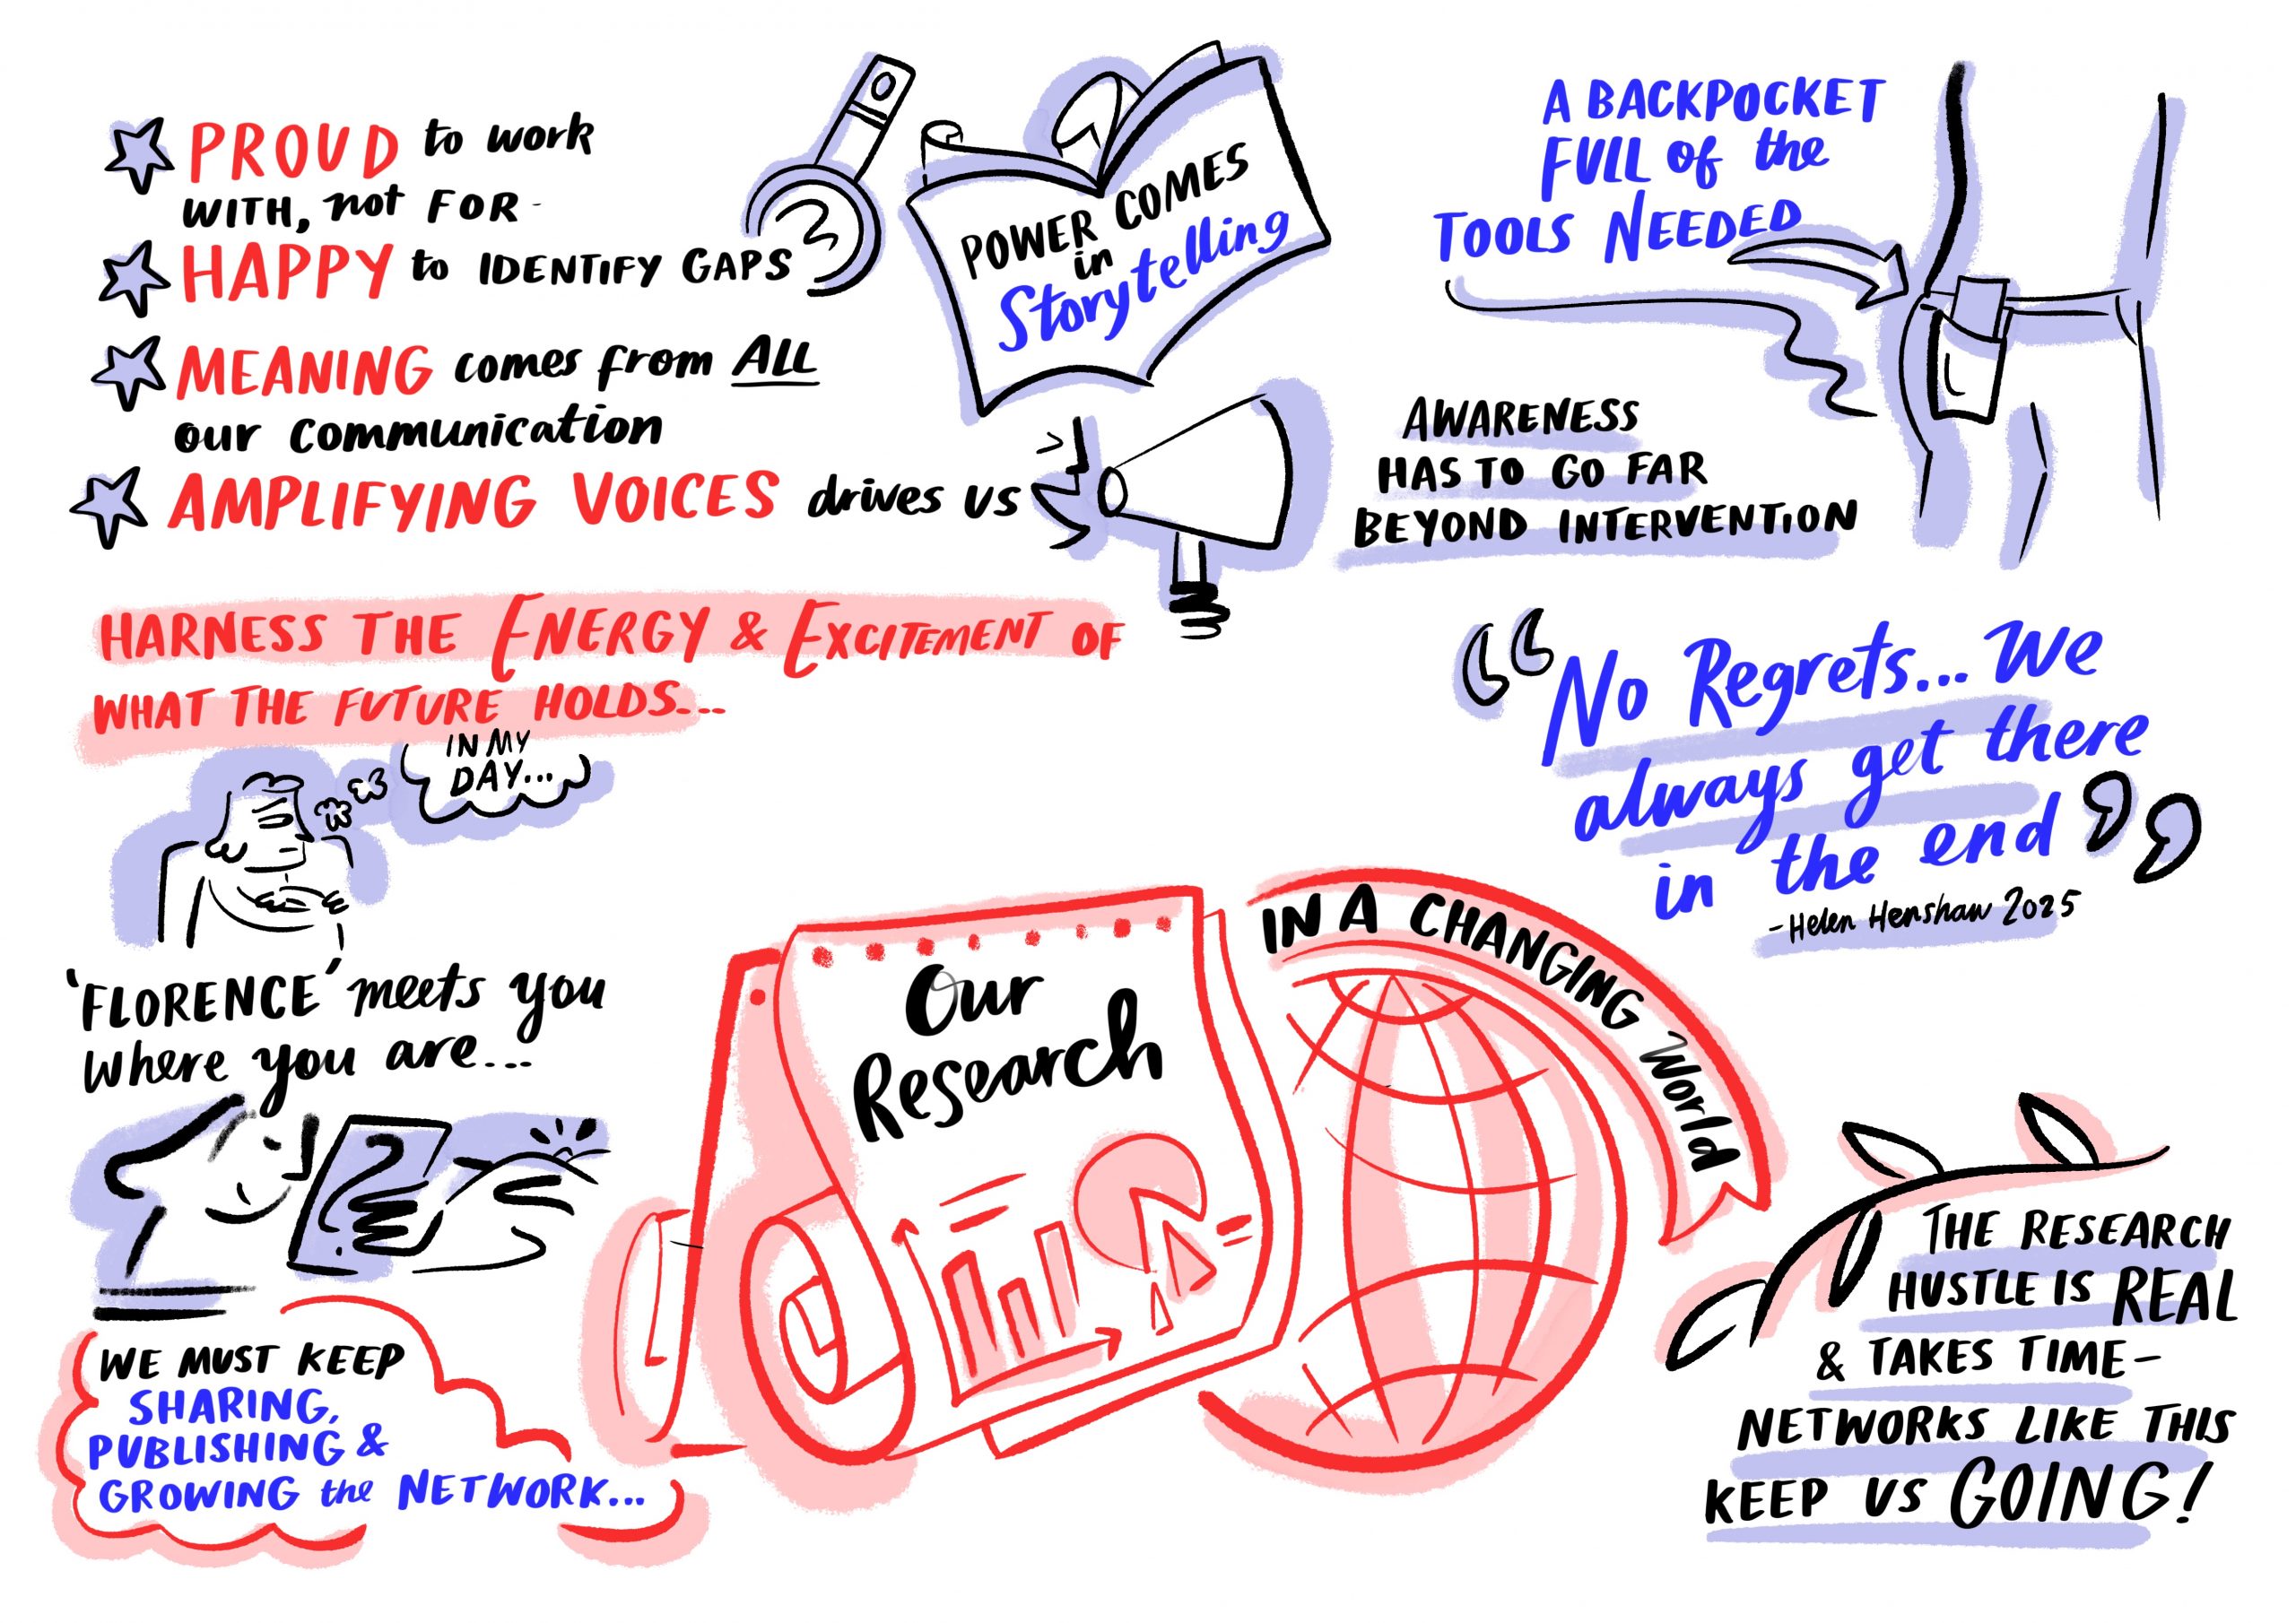 PROUD to work
WITH, not FOR -
HAPPY to IDENTIFY GAPS
MEANING comes from ALL
our communication
AMPLIFYING VOICES drives us
POWER COMES
in
Storytelling
A BACKPOCKET
FULL of the
TOOLS NEEDED
AWARENESS
HAS TO GO FAR
BEYOND INTERVENTION
HARNESS THE ENERGY & EXCITEMENT OF
WHAT THE FUTURE HOLDS...
IN MY
DAY...
'FLORENCE' meets you
where you are...
WE MUST KEEP
SHARING,
PUBLISHING &
GROWING the NETWORK...
Our
Research
IN A CHANGING World
“No Regrets... We
always get there
in the end”
- Helen Henshaw 2025
THE RESEARCH
HUSTLE IS REAL
& TAKES TIME-
NETWORKS LIKE THIS
KEEP US GOING!